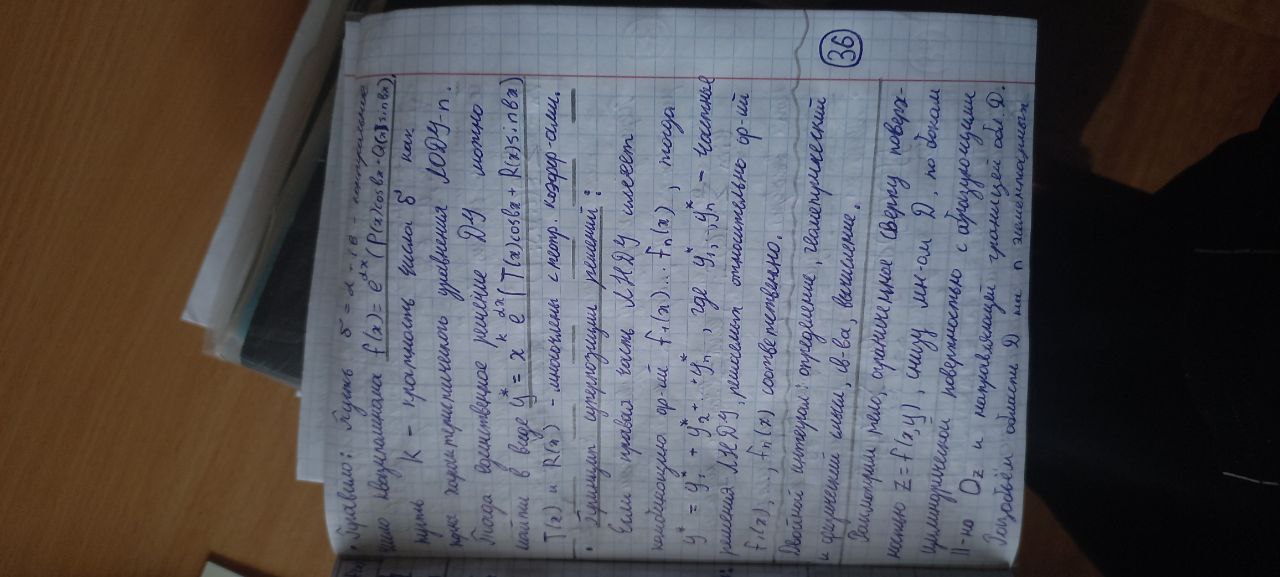 • Правило: Пусть δ = α + iβ -
число квазиполинома f(x) = e^αx (P(x)cosbx + Q(x)sinbx),
пусть K - кратность числа δ как
корня характеристического уравнения ЛОДУ-n.
Тогда решение ДУ можно
найти в виде y* = x^k e^αx (T(x)cosbx + R(x)sinbx)
T(x) и R(x) - многочлены с неопр. коэфф-ами.
• Принцип суперпозиции решений:
Если правая часть ЛНДУ имеет
комбинацию ф-ий f₁(x)...fₙ(x), тогда
y* = y₁* + y₂* + yₙ*, где y₁*, yₙ* - частные
решения ЛНДУ, решаемых относительно ф-ий
f₁(x),..., fₙ(x) соответственно.
36
Двойной интеграл: определение, геометрический
и физический смысл, св-ва, вычисление.
Рассмотрим тело, ограниченное сверху поверх-
ностью z = f(x,y), снизу мн-ом D, по бокам
цилиндрической поверхностью с образующими
||-но Oz и направляющей границей обл D.
Разобьём области D на n элементарных